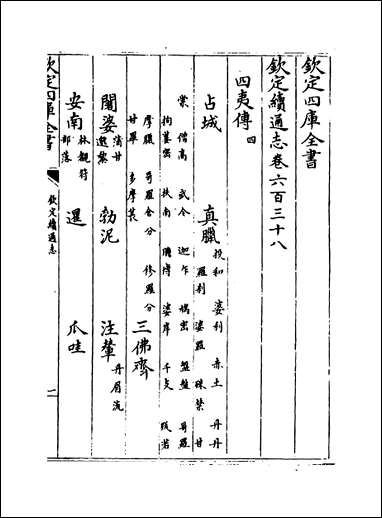 欽定四庫全書
欽定續通志卷六百三十八
四夷傳 四
占城 真臘 投和 婆利 赤土 丹丹
羅刹 婆羅 殊柰 甘
棠 僧高 武令 迦乍 鳩密 盤盤 哥羅
拘蔞密 扶南 聃博 婆岸 千支 跋若
摩臘 哥羅舍分 修羅分
甘畢 多摩萇 三佛齊
闍婆 蒲甘 邈黎 勃泥 注輦 丹眉流
安南 林覲符 部落 暹 爪哇
欽定四庫全書
欽定續通志
一